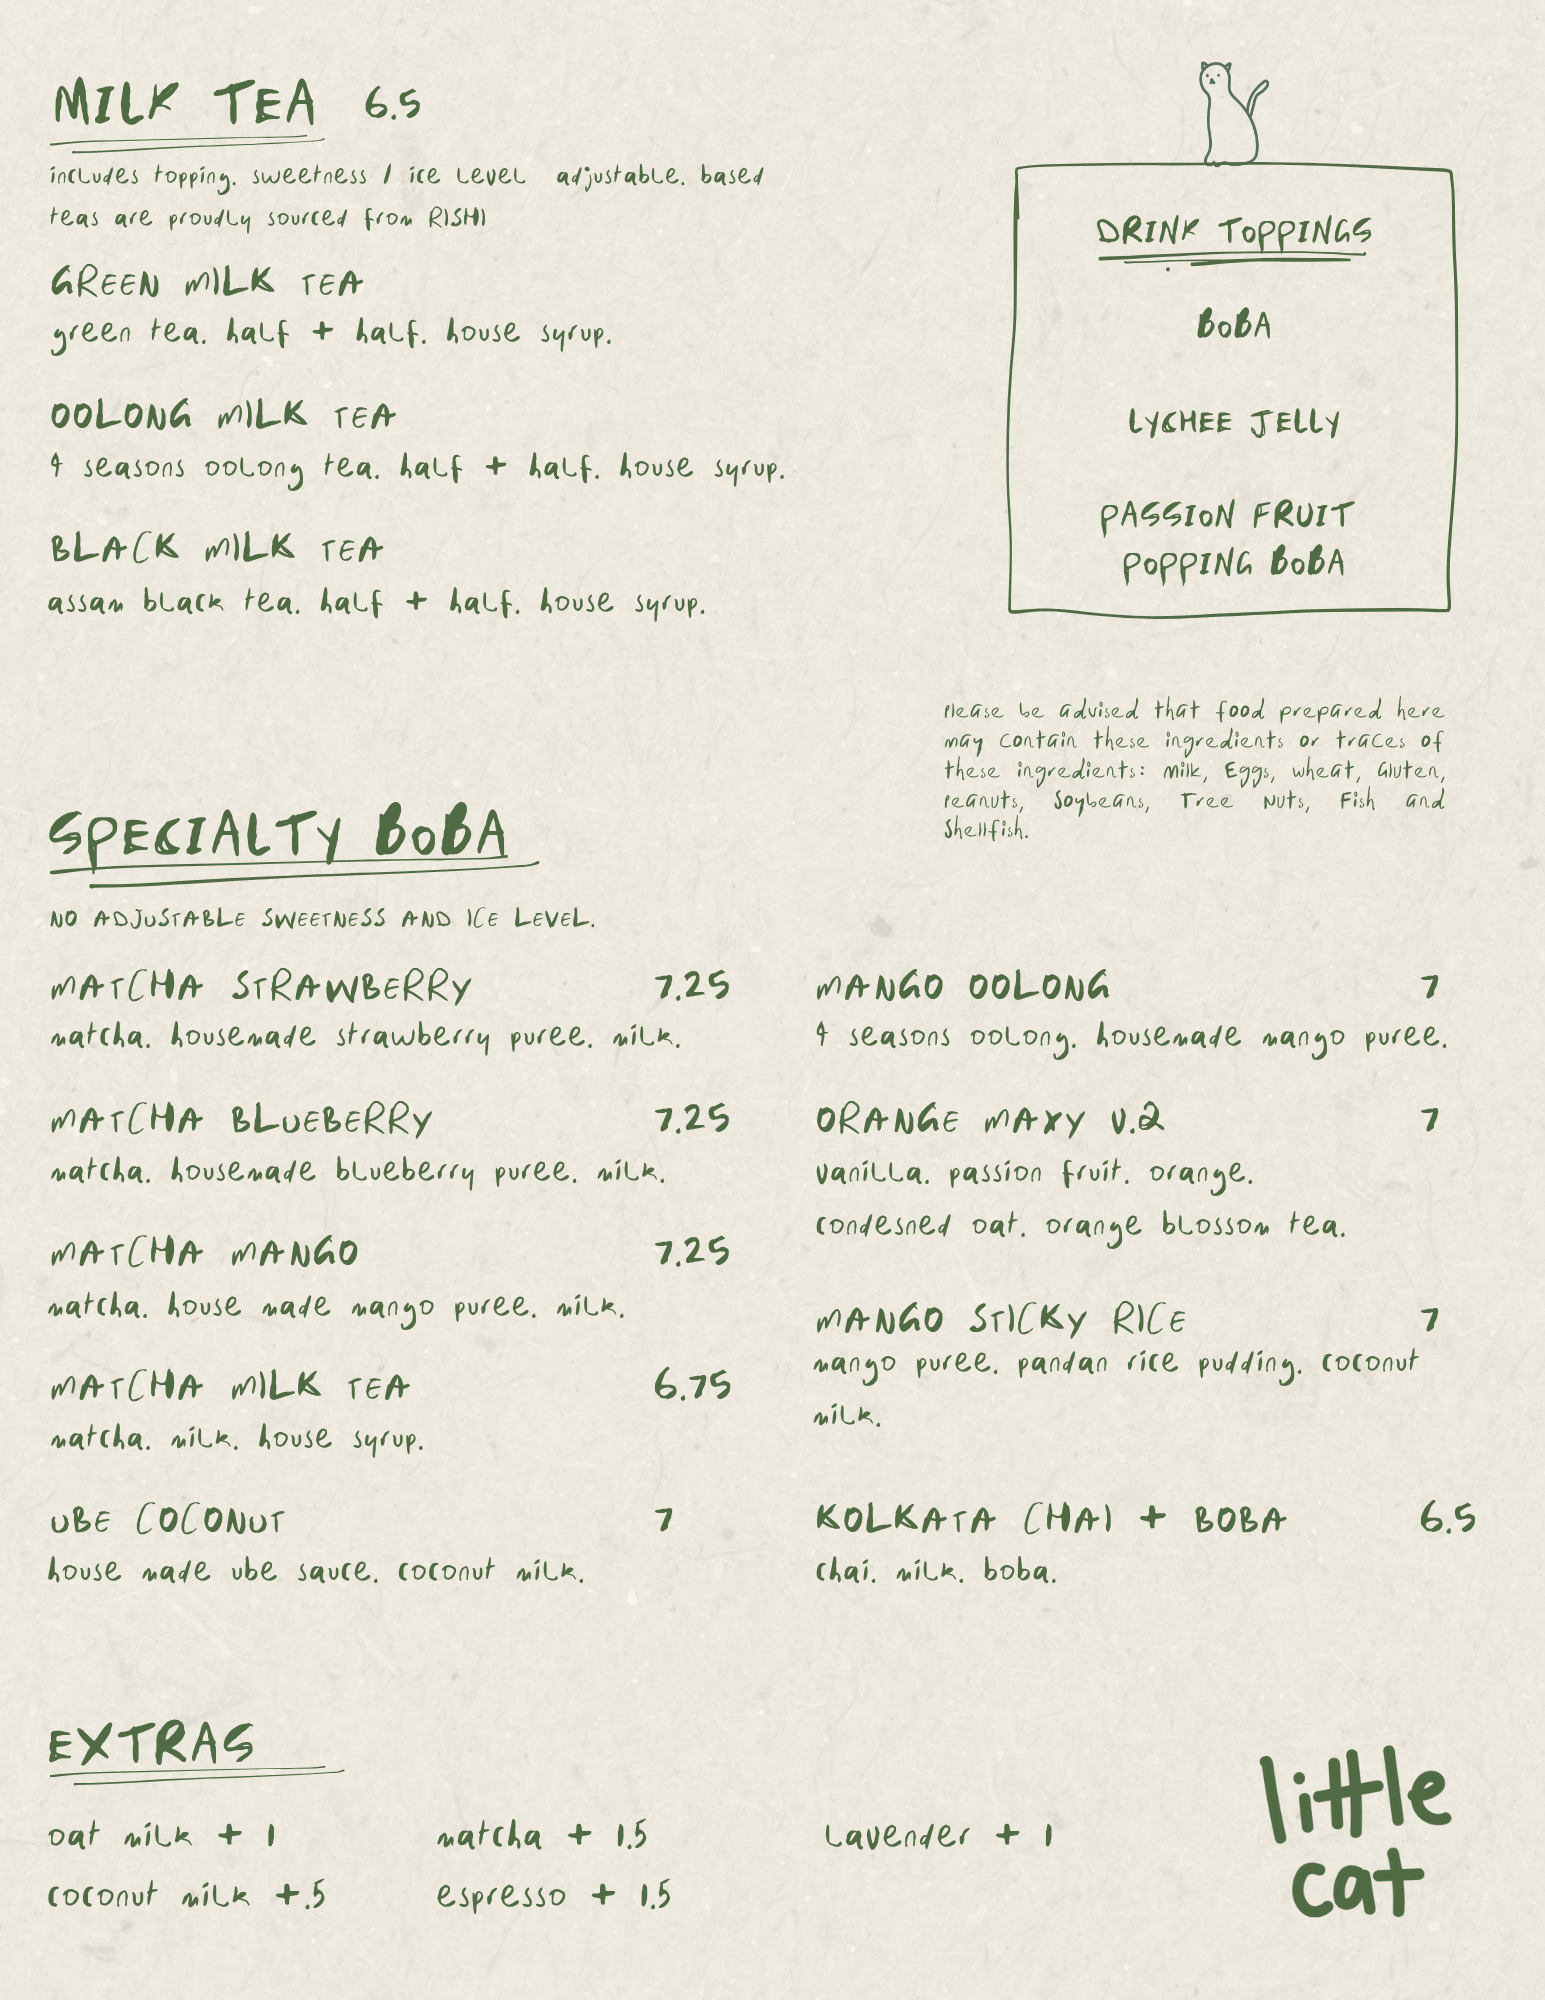 MILK TEA 6.5
includes topping. sweetness / ice level adjustable. based
teas are proudly sourced from RISHI
GREEN MILK TEA
green tea. half + half. house syrup.
OOLONG MILK TEA
4 seasons oolong tea. half + half. house syrup.
BLACK MILK TEA
assam black tea. half + half. house syrup.
DRINK TOPPINGS
BOBA
LYCHEE JELLY
PASSION FRUIT
POPPING BOBA
Please be advised that food prepared here
may contain these ingredients or traces of
these ingredients: Milk, Eggs, wheat, Gluten,
Peanuts, Soybeans, Tree Nuts, Fish and
Shellfish.
SPECIALTY BOBA
NO ADJUSTABLE SWEETNESS AND ICE LEVEL.
MATCHA STRAWBERRY 7.25
matcha. housemade strawberry puree. milk.
MATCHA BLUEBERRY 7.25
matcha. housemade blueberry puree. milk.
MATCHA MANGO 7.25
matcha. house made mango puree. milk.
MATCHA MILK TEA 6.75
matcha. milk. house syrup.
UBE COCONUT 7
house made ube sauce. coconut milk.
MANGO OOLONG 7
4 seasons oolong. housemade mango puree.
ORANGE MAXY V.2 7
vanilla. passion fruit. orange.
condesned oat. orange blossom tea.
MANGO STICKY RICE 7
mango puree. pandan rice pudding. coconut
milk.
KOLKATA CHAI + BOBA 6.5
chai. milk. boba.
EXTRAS
oat milk + 1
coconut milk +.5
matcha + 1.5
espresso + 1.5
lavender + 1
little
cat